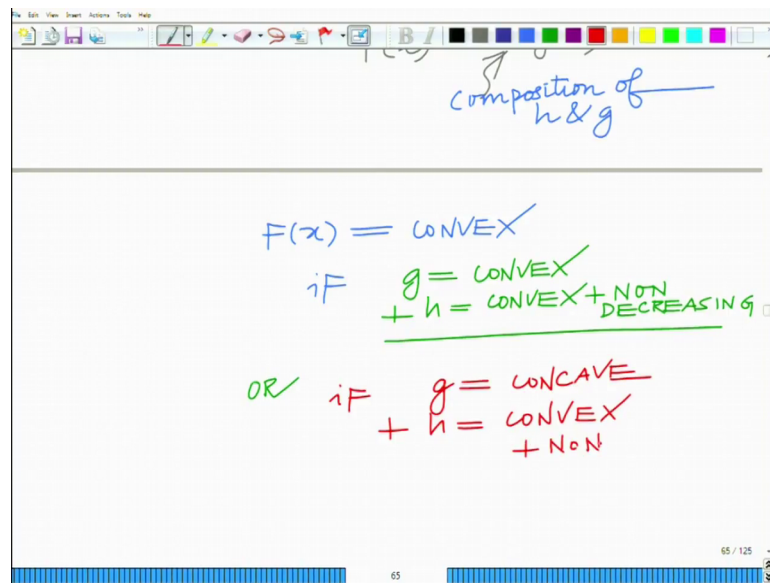 File Edit View Insert Actions Tools Help
B I
composition of
h & g
F(x) = CONVEX
iF g = CONVEX
+ h = CONVEX + NON
DECREASING
OR iF g = CONCAVE
+ h = CONVEX
+ NON
65 / 125
65